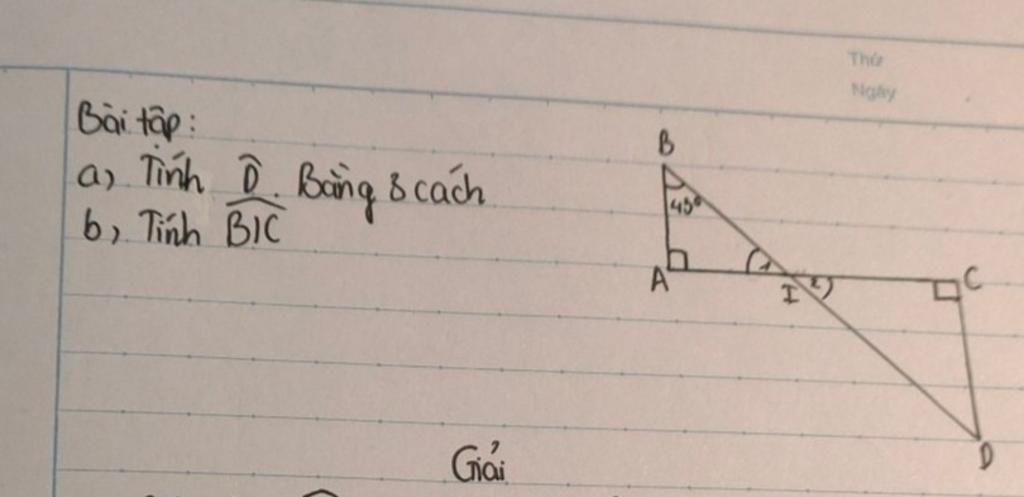 Thứ
Ngày
Bài tập:
a) Tính D̂. Bằng 3 cách
b) Tính BIC
B
45°
A
1
I
2
C
D
Giải